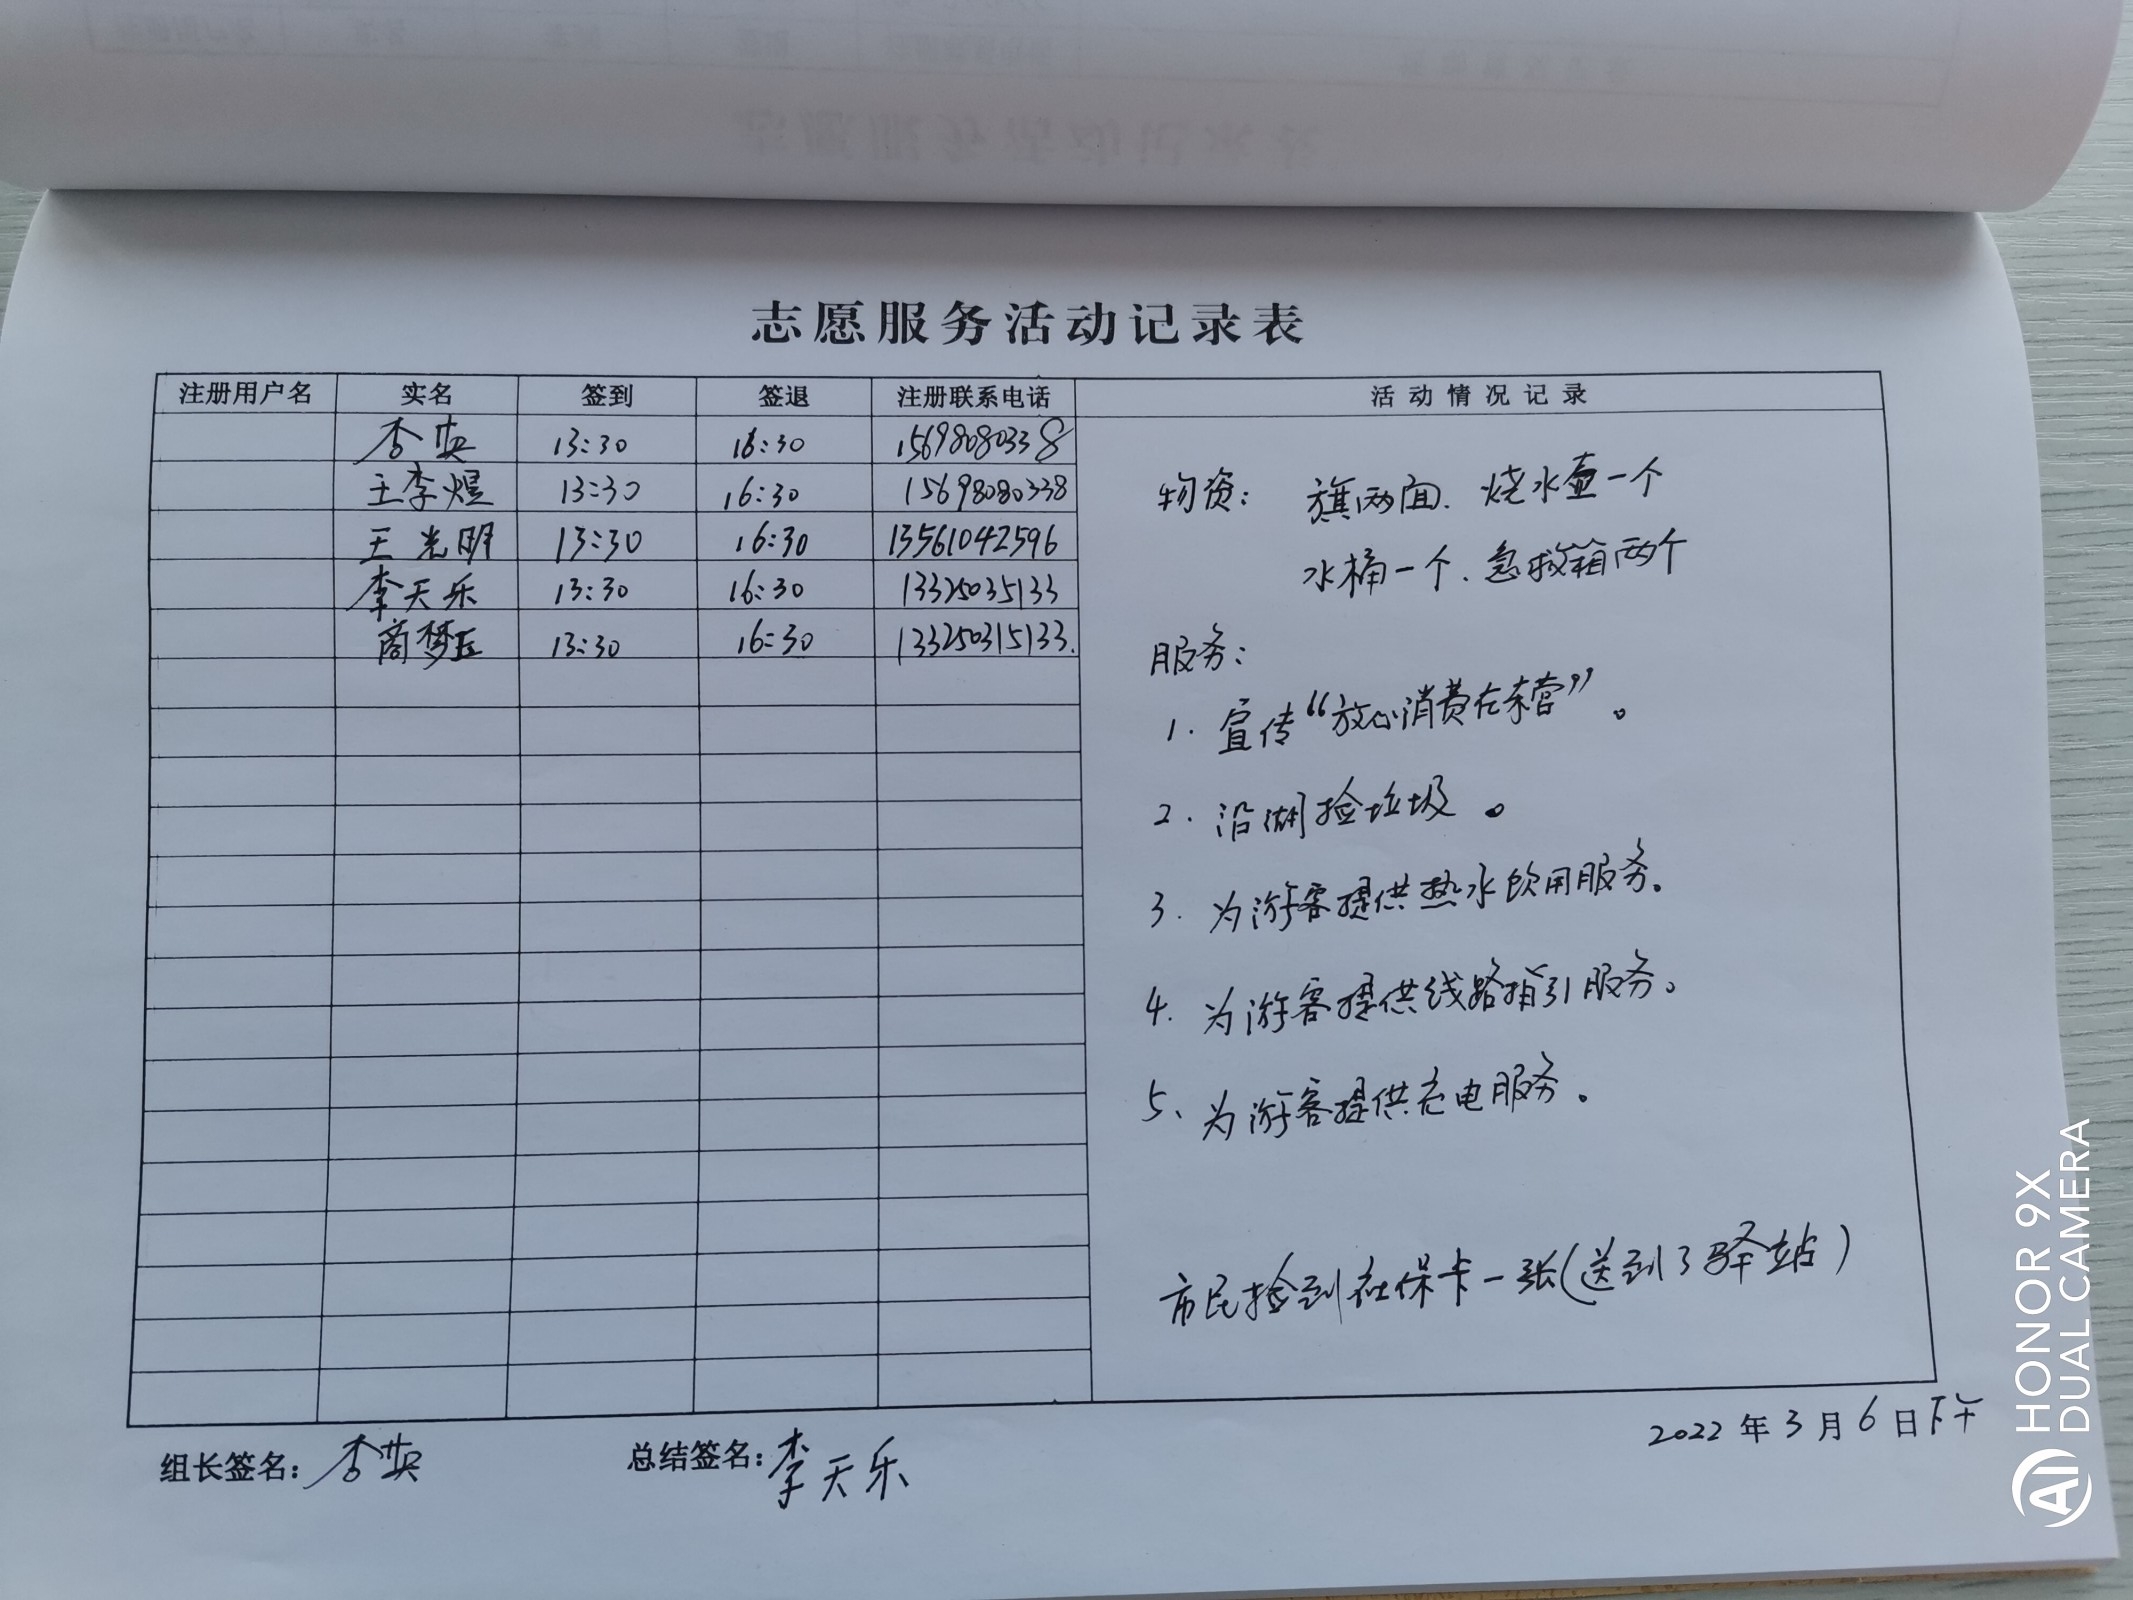 志愿服务活动记录表
注册用户名 实名 签到 签退 注册联系电话 活动情况记录
李英 13:30 16:30 15698080338
王李煜 13:30 16:30 15698080338
王光明 13:30 16:30 13561042596
李天乐 13:30 16:30 13325035133
商梦 13:30 16:30 133250315133.
物资: 旗两面. 烧水壶一个
水桶一个. 急救箱两个
服务:
1. 宣传“放心消费在东营”。
2. 沿湖捡垃圾。
3. 为游客提供热水饮用服务。
4. 为游客提供线路指引服务。
5、为游客提供充电服务。
市民捡到社保卡一张(送到了驿站)
2022年3月6日下午
组长签名: 李英 总结签名: 李天乐
HONOR 9X
DUAL CAMERA
AI